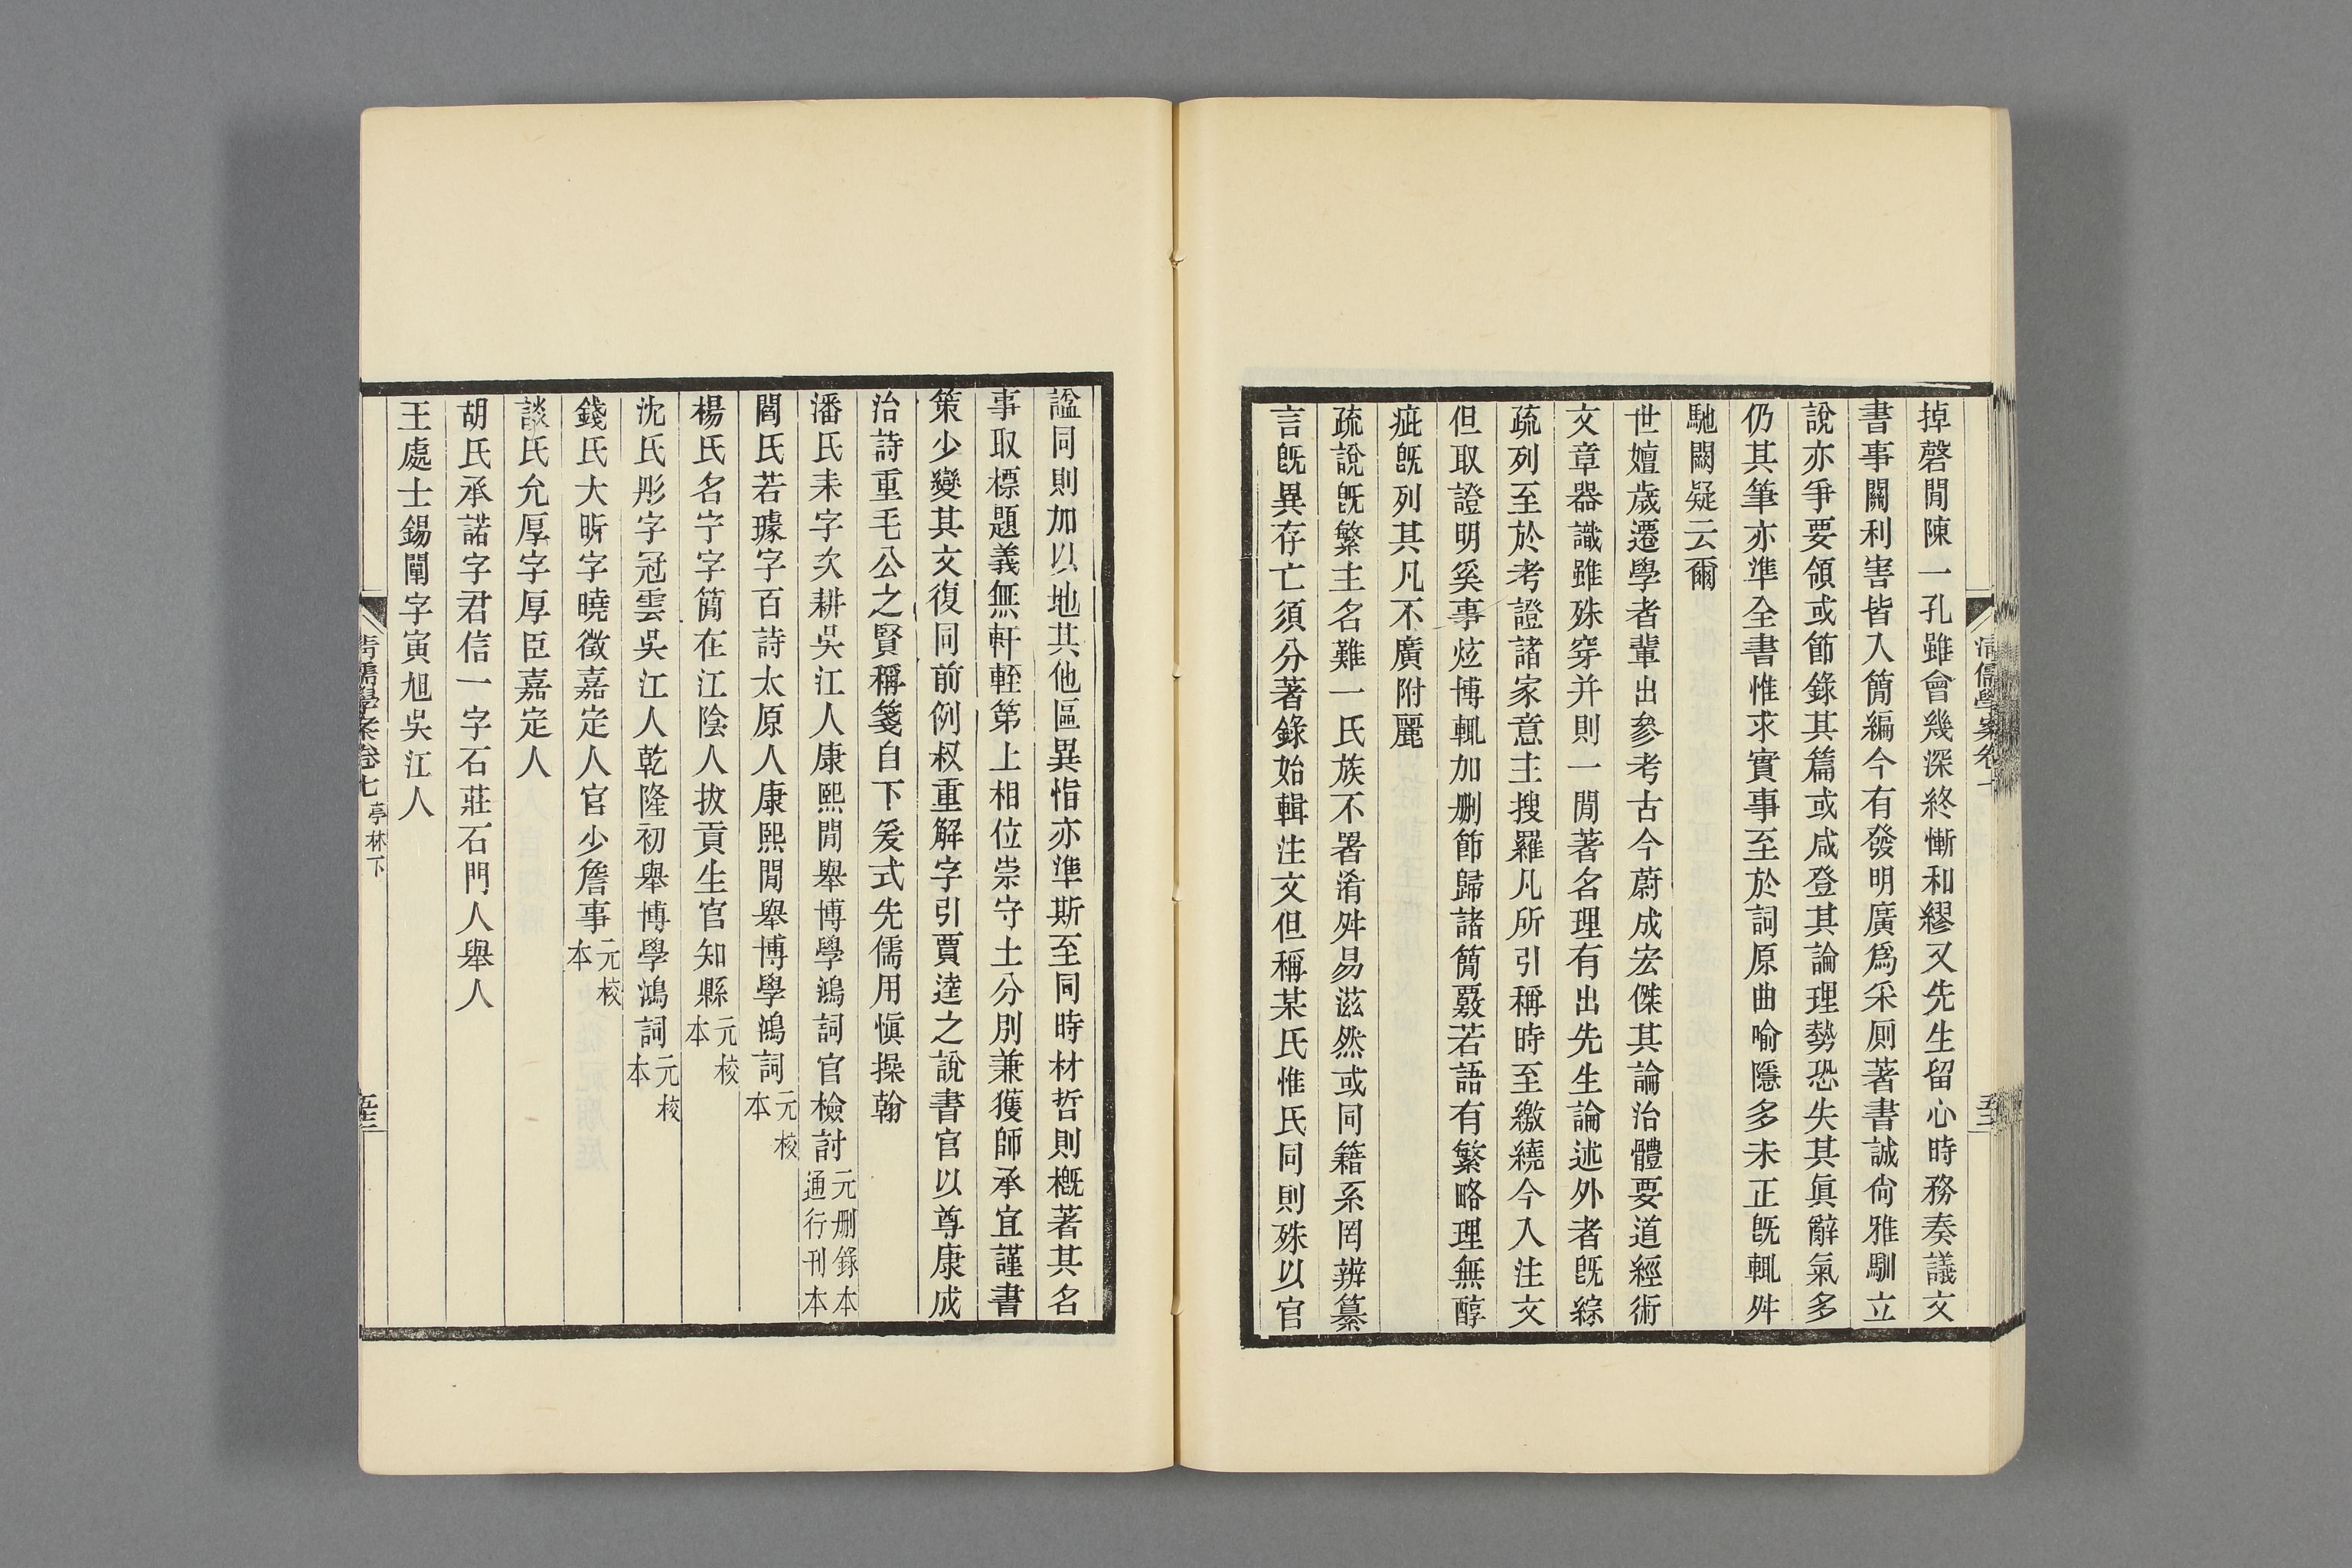 清儒學案卷七
掉罄閒陳一孔雖會幾深終慚和繆又先生留心時務奏議文
書事關利害皆入簡編今有發明廣爲采厠著書誠尙雅馴立
說亦爭要領或節錄其篇或咸登其論理勢恐失其眞辭氣多
仍其筆亦準全書惟求實事至於詞原曲喻隱多未正旣輒舛
馳闕疑云爾
世嬗歲遷學者輩出參考古今蔚成宏傑其論治體要道經術
文章器識雖殊穿并則一閒著名理有出先生論述外者旣綜
疏列至於考證諸家意主搜羅凡所引稱時至繳繞今入注文
但取證明奚事炫博輒加删節歸諸簡覈若語有繁略理無醇
疵旣列其凡不廣附麗
疏說旣繁主名難一氏族不署淆舛易滋然或同籍系罔辨纂
言旣異存亡須分著錄始輯注文但稱某氏惟氏同則殊以官
謚同則加以地其他區異恉亦準斯至同時材哲則槪著其名
事取標題義無軒輊第上相位崇守土分別兼獲師承宜謹書
策少變其文復同前例叔重解字引賈逵之說書官以尊康成
治詩重毛公之賢稱箋自下爰式先儒用愼操翰
潘氏耒字次耕吳江人康熙閒舉博學鴻詞官檢討元删錄本通行刊本
閻氏若璩字百詩太原人康熙閒舉博學鴻詞元校本
楊氏名宁字簡在江陰人拔貢生官知縣元校本
沈氏彤字冠雲吳江人乾隆初舉博學鴻詞元校本
錢氏大昕字曉徵嘉定人官少詹事元校本
談氏允厚字厚臣嘉定人
胡氏承諾字君信一字石莊石門人舉人
王處士錫闡字寅旭吳江人
清儒學案卷七 亭林下